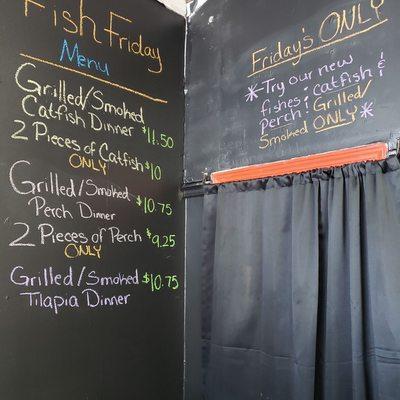 Fish Friday
Menu
Grilled/Smoked
Catfish Dinner $11.50
2 Pieces of Catfish $10
ONLY
Grilled/Smoked
Perch Dinner $10.75
2 Pieces of Perch $9.25
ONLY
Grilled/Smoked $10.75
Tilapia Dinner
Friday's ONLY
*Try our new
fishes: catfish &
perch: Grilled/
Smoked ONLY*